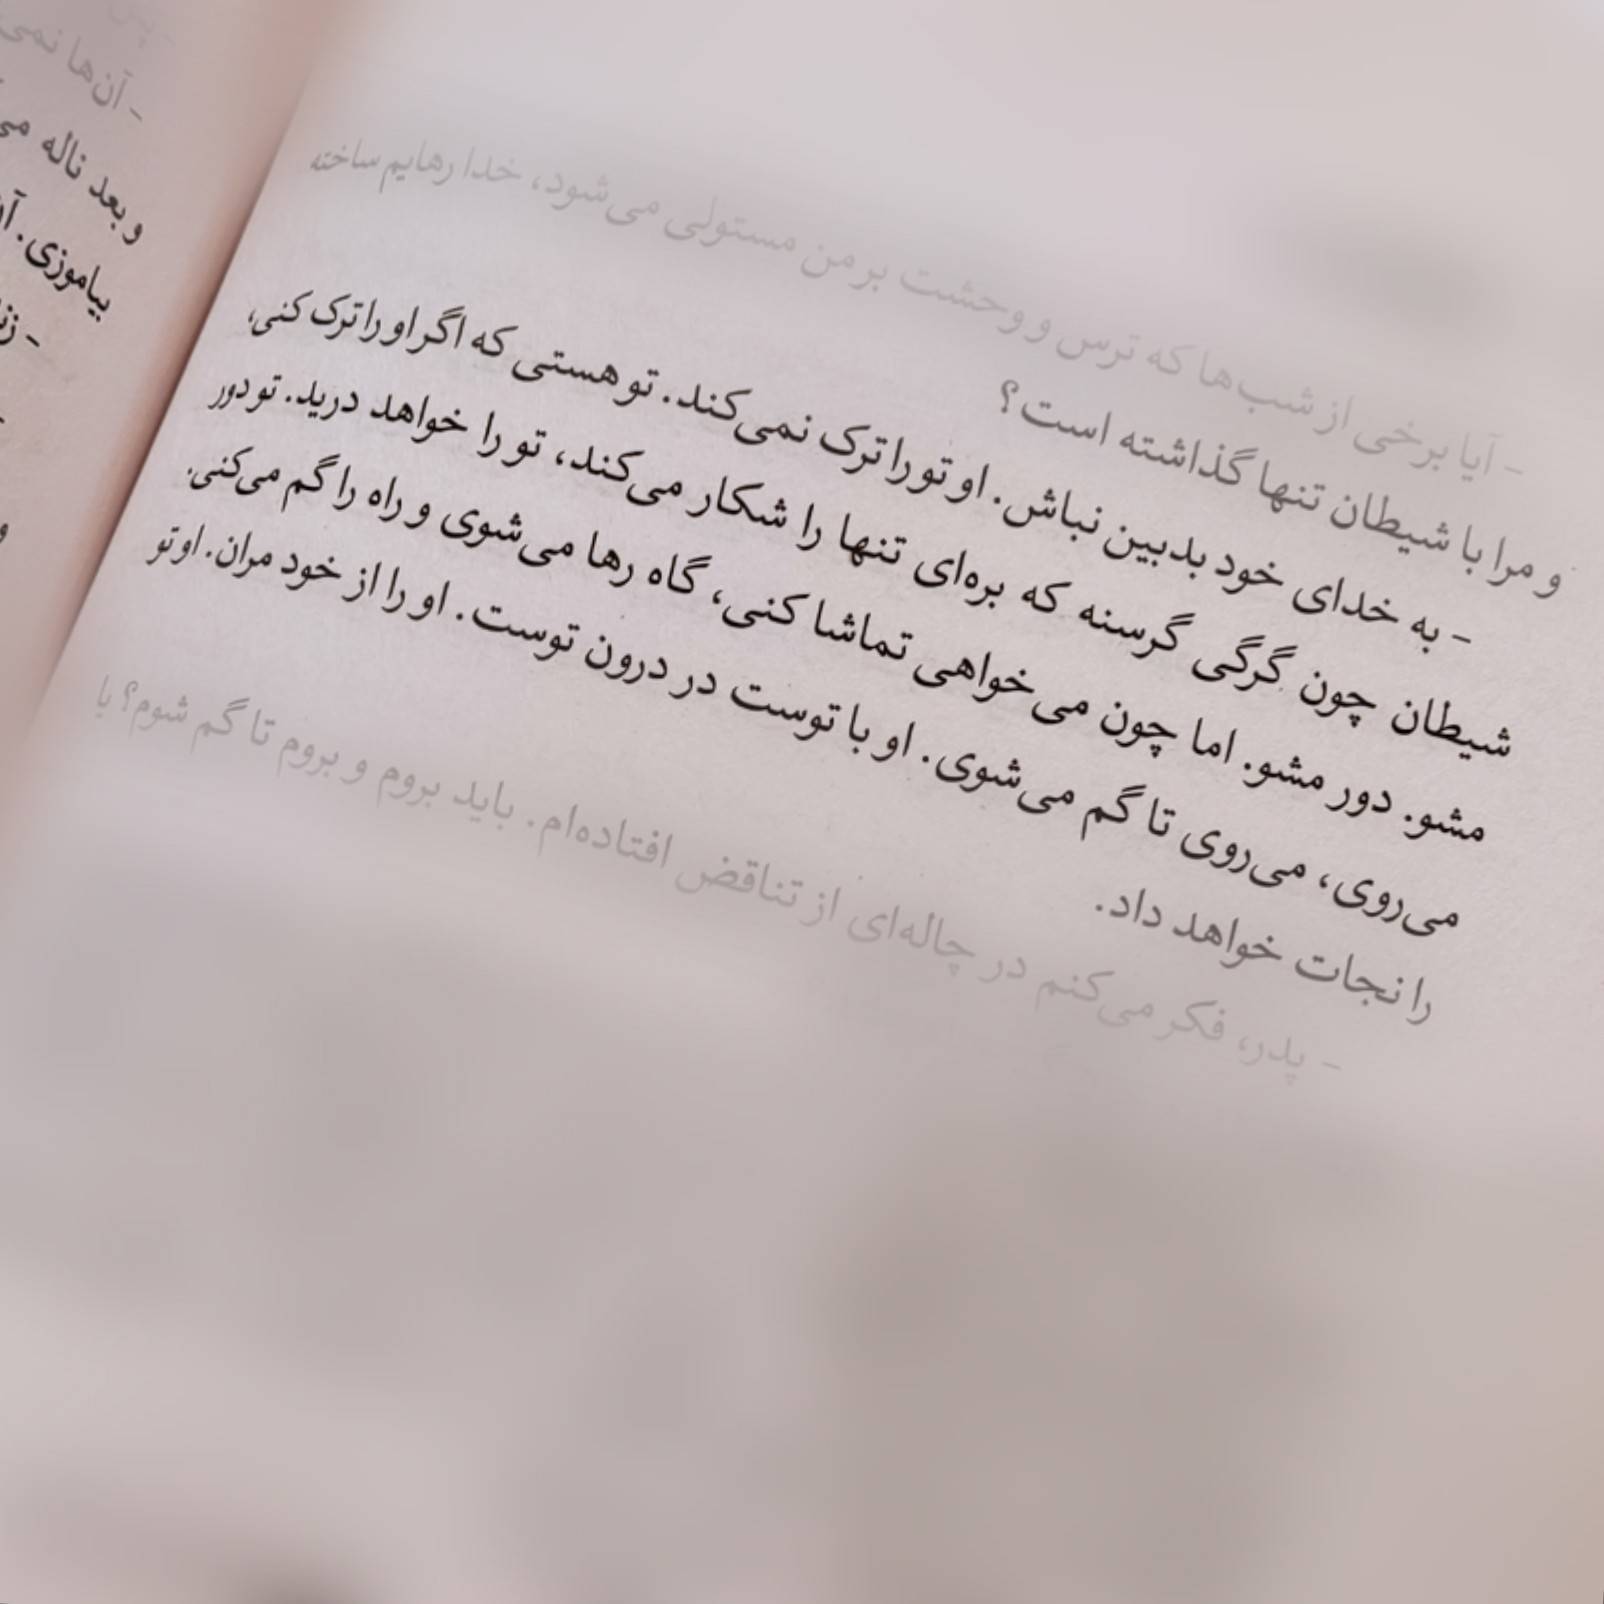 - آیا برخی از شب‌ها که ترس و وحشت بر من مستولی می‌شود، خدا رهایم ساخته
و مرا با شیطان تنها گذاشته است؟
- به خدای خود بدبین نباش. او تو را ترک نمی‌کند. تو هستی که اگر او را ترک کنی،
شیطان چون گرگی گرسنه که بره‌ای تنها را شکار می‌کند، تو را خواهد درید. تو دور
مشو. دور مشو. اما چون می‌خواهی تماشا کنی، گاه رها می‌شوی و راه را گم می‌کنی.
می‌روی، می‌روی تا گم می‌شوی. او با توست در درون توست. او را از خود مران. او تو
را نجات خواهد داد.
- پدر، فکر می‌کنم در چاله‌ای از تناقض افتاده‌ام. باید بروم و بروم تا گم شوم؟ یا
- آن‌ها نمی
و بعد ناله
بیاموزی.